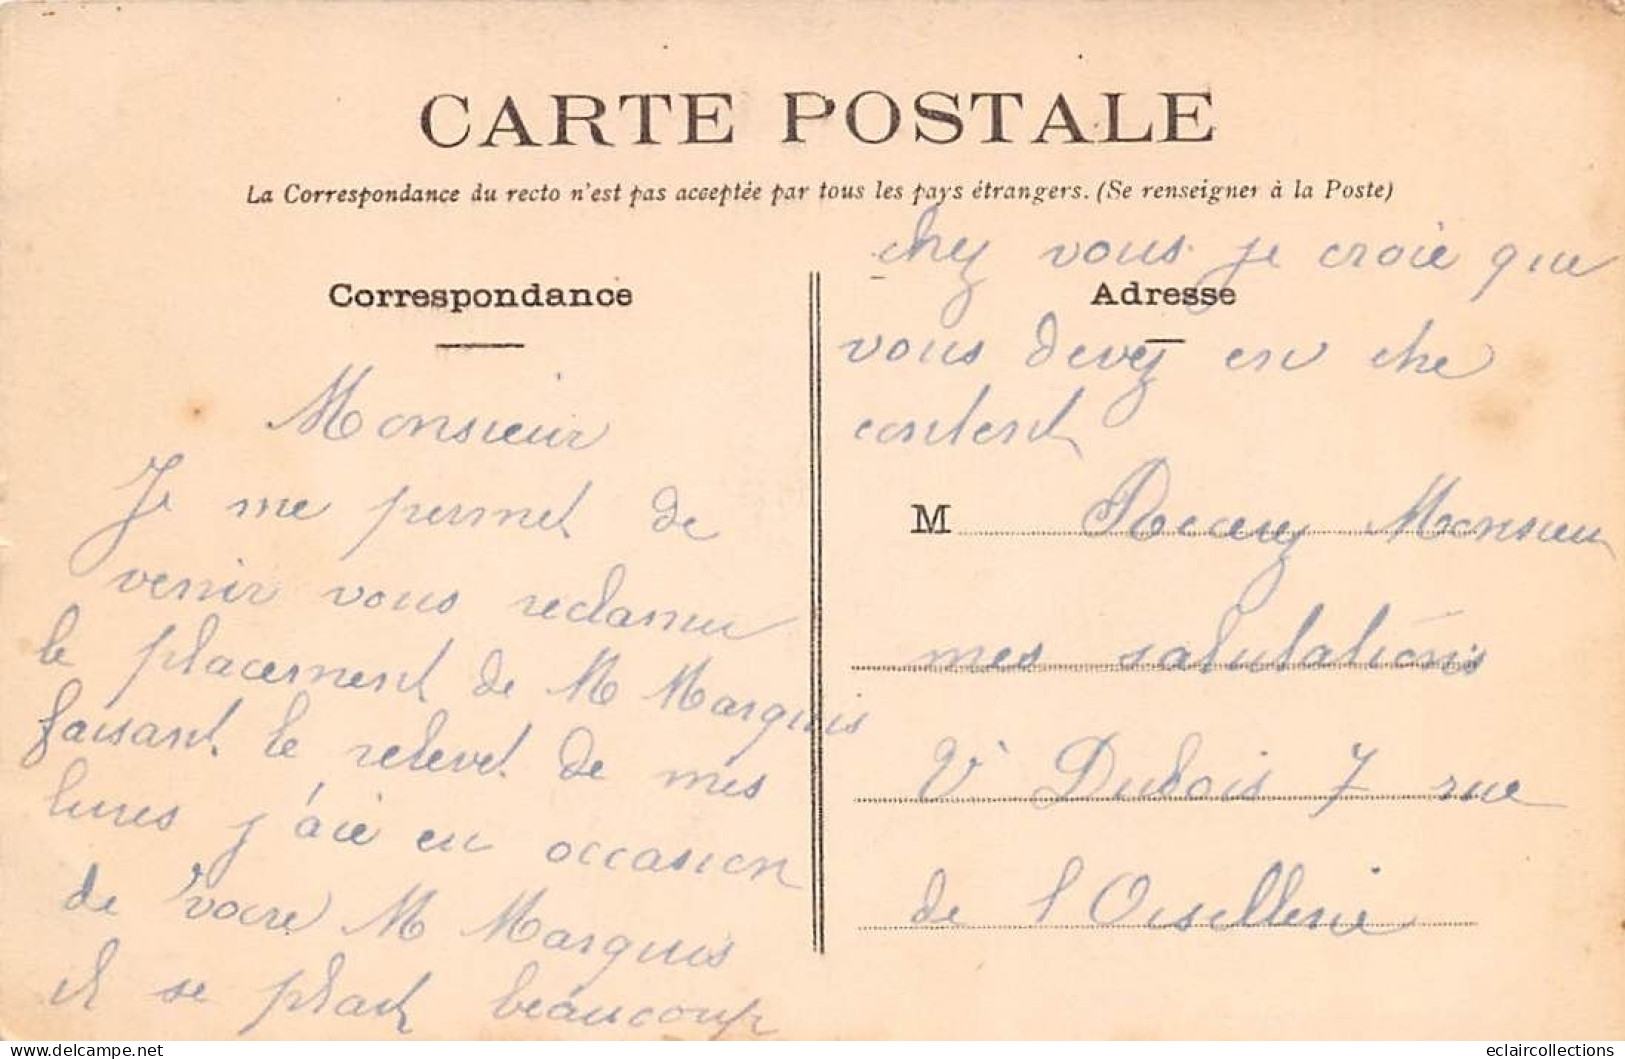 CARTE POSTALE
La Correspondance du recto n'est pas acceptée par tous les pays étrangers. (Se renseigner à la Poste)
Correspondance
Monsieur
Je me permet de
venir vous reclamer
le placement de M Marquis
faisant le relevet de mes
livres j'aie eu occasion
de voire M Marquis
il se plait beaucoup
Adresse
chez vous je croie que
vous devez en etre
content
M Recevez Monsieur
mes salutations
Ve Dubois 7 rue
de l Oisellerie
eclaircollections